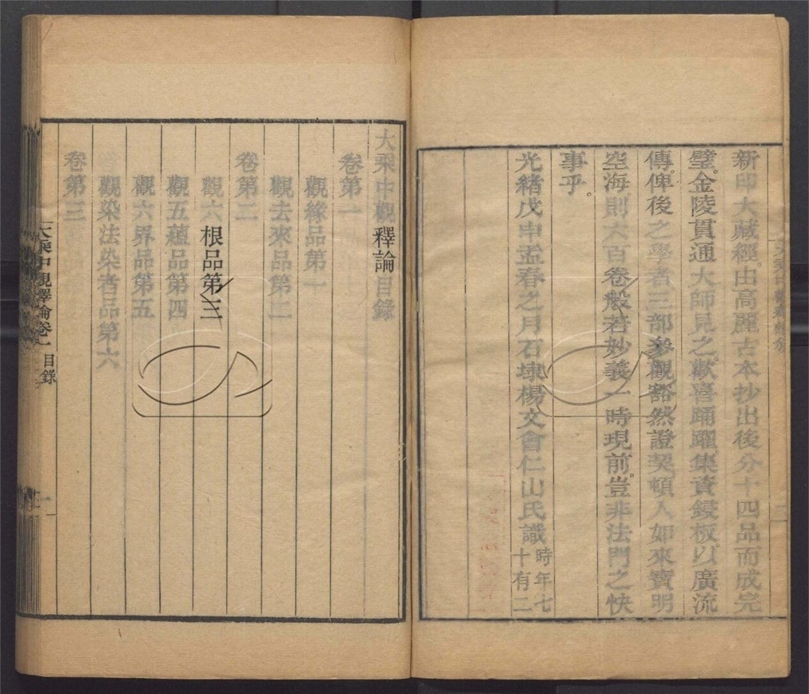 新印大藏經由高麗古本抄出後分十四品而成完
璧金陵貫通大師見之歡喜踊躍集資鋟板以廣流
傳俾後之學者三部參觀豁然證契頓入如來寶明
空海則六百卷般若妙義一時現前豈非法門之快
事乎
光緒戊申孟春之月石埭楊文會仁山氏識時年七
十有二
大乘中觀釋論目錄
卷第一
觀緣品第一
觀去來品第二
卷第二
觀六根品第三
觀五蘊品第四
觀六界品第五
觀染法染者品第六
卷第三
大乘中觀釋論卷一 目錄 一